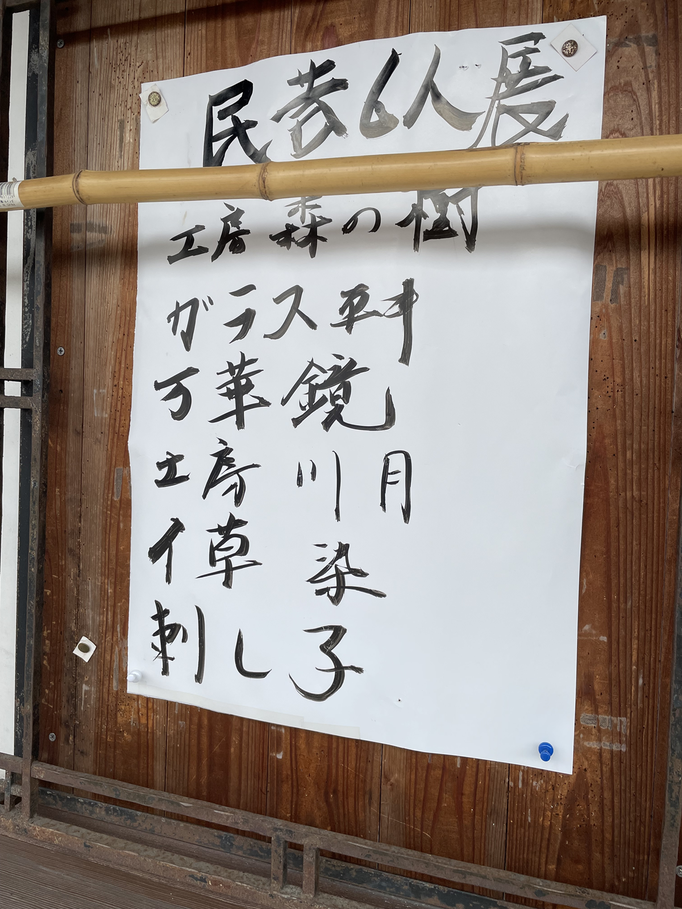 民芸6人展
工房 森の樹
ガラス
万華鏡
土房 川月
イ草 染
刺し子